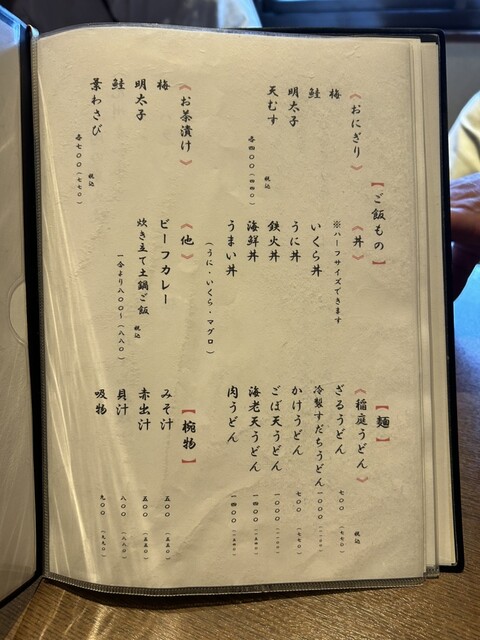 【ご飯もの】
《おにぎり》
梅
鮭
明太子
天むす
税込
各四〇〇（四四〇）
《お茶漬け》
梅
明太子
鮭
葉わさび
税込
各七〇〇（七七〇）
《丼》
※ハーフサイズできます
いくら丼
うに丼
鉄火丼
海鮮丼
うまい丼
（うに・いくら・マグロ）
《他》
ビーフカレー
炊き立て土鍋ご飯
税込
一合より八〇〇～（八八〇）
【麺】
《稲庭うどん》
税込
ざるうどん 七〇〇（七七〇）
冷製すだちうどん 一〇〇〇（一一〇〇）
かけうどん 七〇〇（七七〇）
ごぼ天うどん 一〇〇〇（一一〇〇）
海老天うどん 一四〇〇（一五四〇）
肉うどん 一四〇〇（一五四〇）
【椀物】
みそ汁 五〇〇（五五〇）
赤出汁 五〇〇（五五〇）
貝汁 八〇〇（八八〇）
吸物 九〇〇（九九〇）